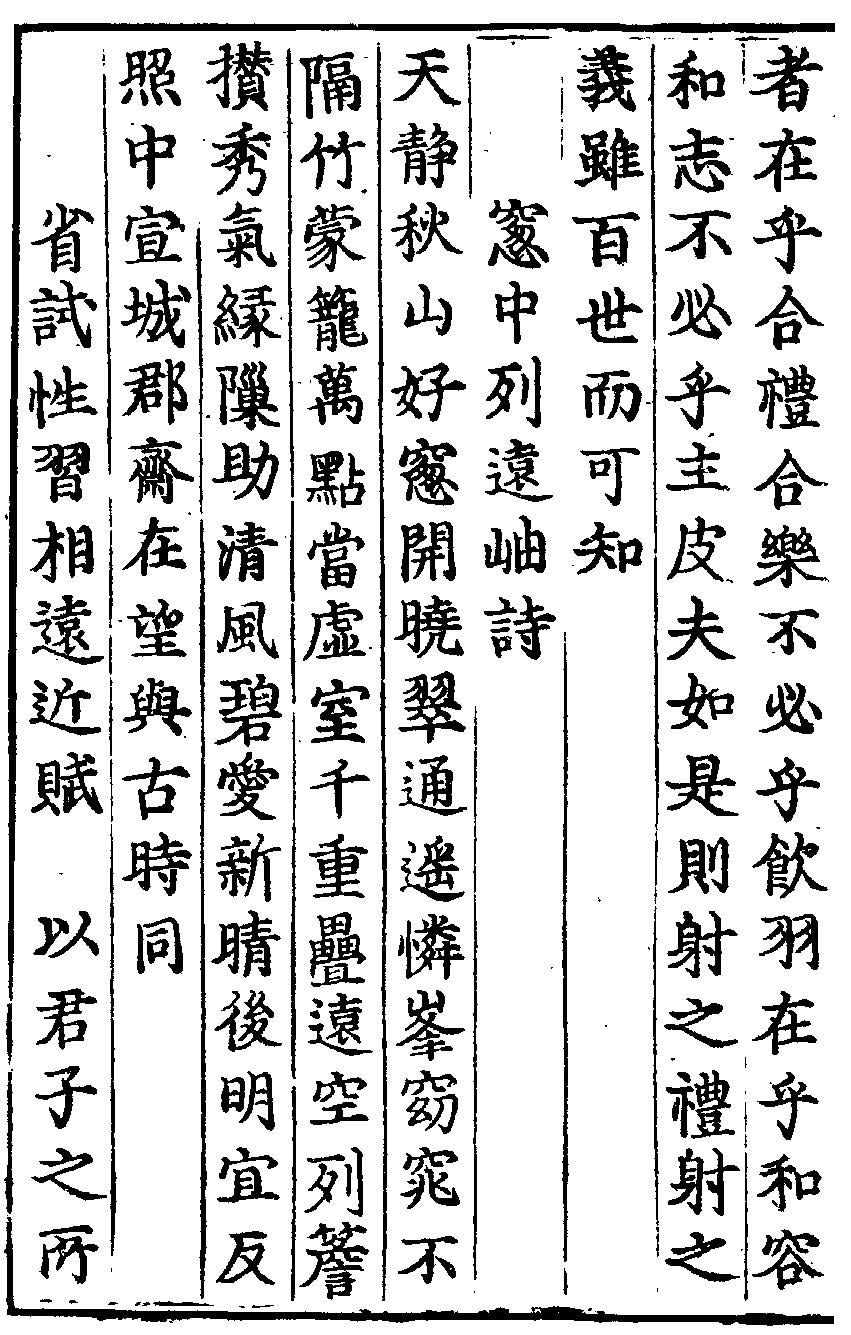 者在乎合禮合樂不必乎飲羽在乎和容
和志不必乎主皮夫如是則射之禮射之
義雖百世而可知
窻中列遠岫詩
天静秋山好窻開曉翠通遥憐峯窈窕不
隔竹蒙籠萬點當虛室千重疊遠空列簷
攅秀氣緣隟助清風碧愛新晴後明宜反
照中宣城郡齋在望與古時同
省試性習相遠近賦　以君子之所